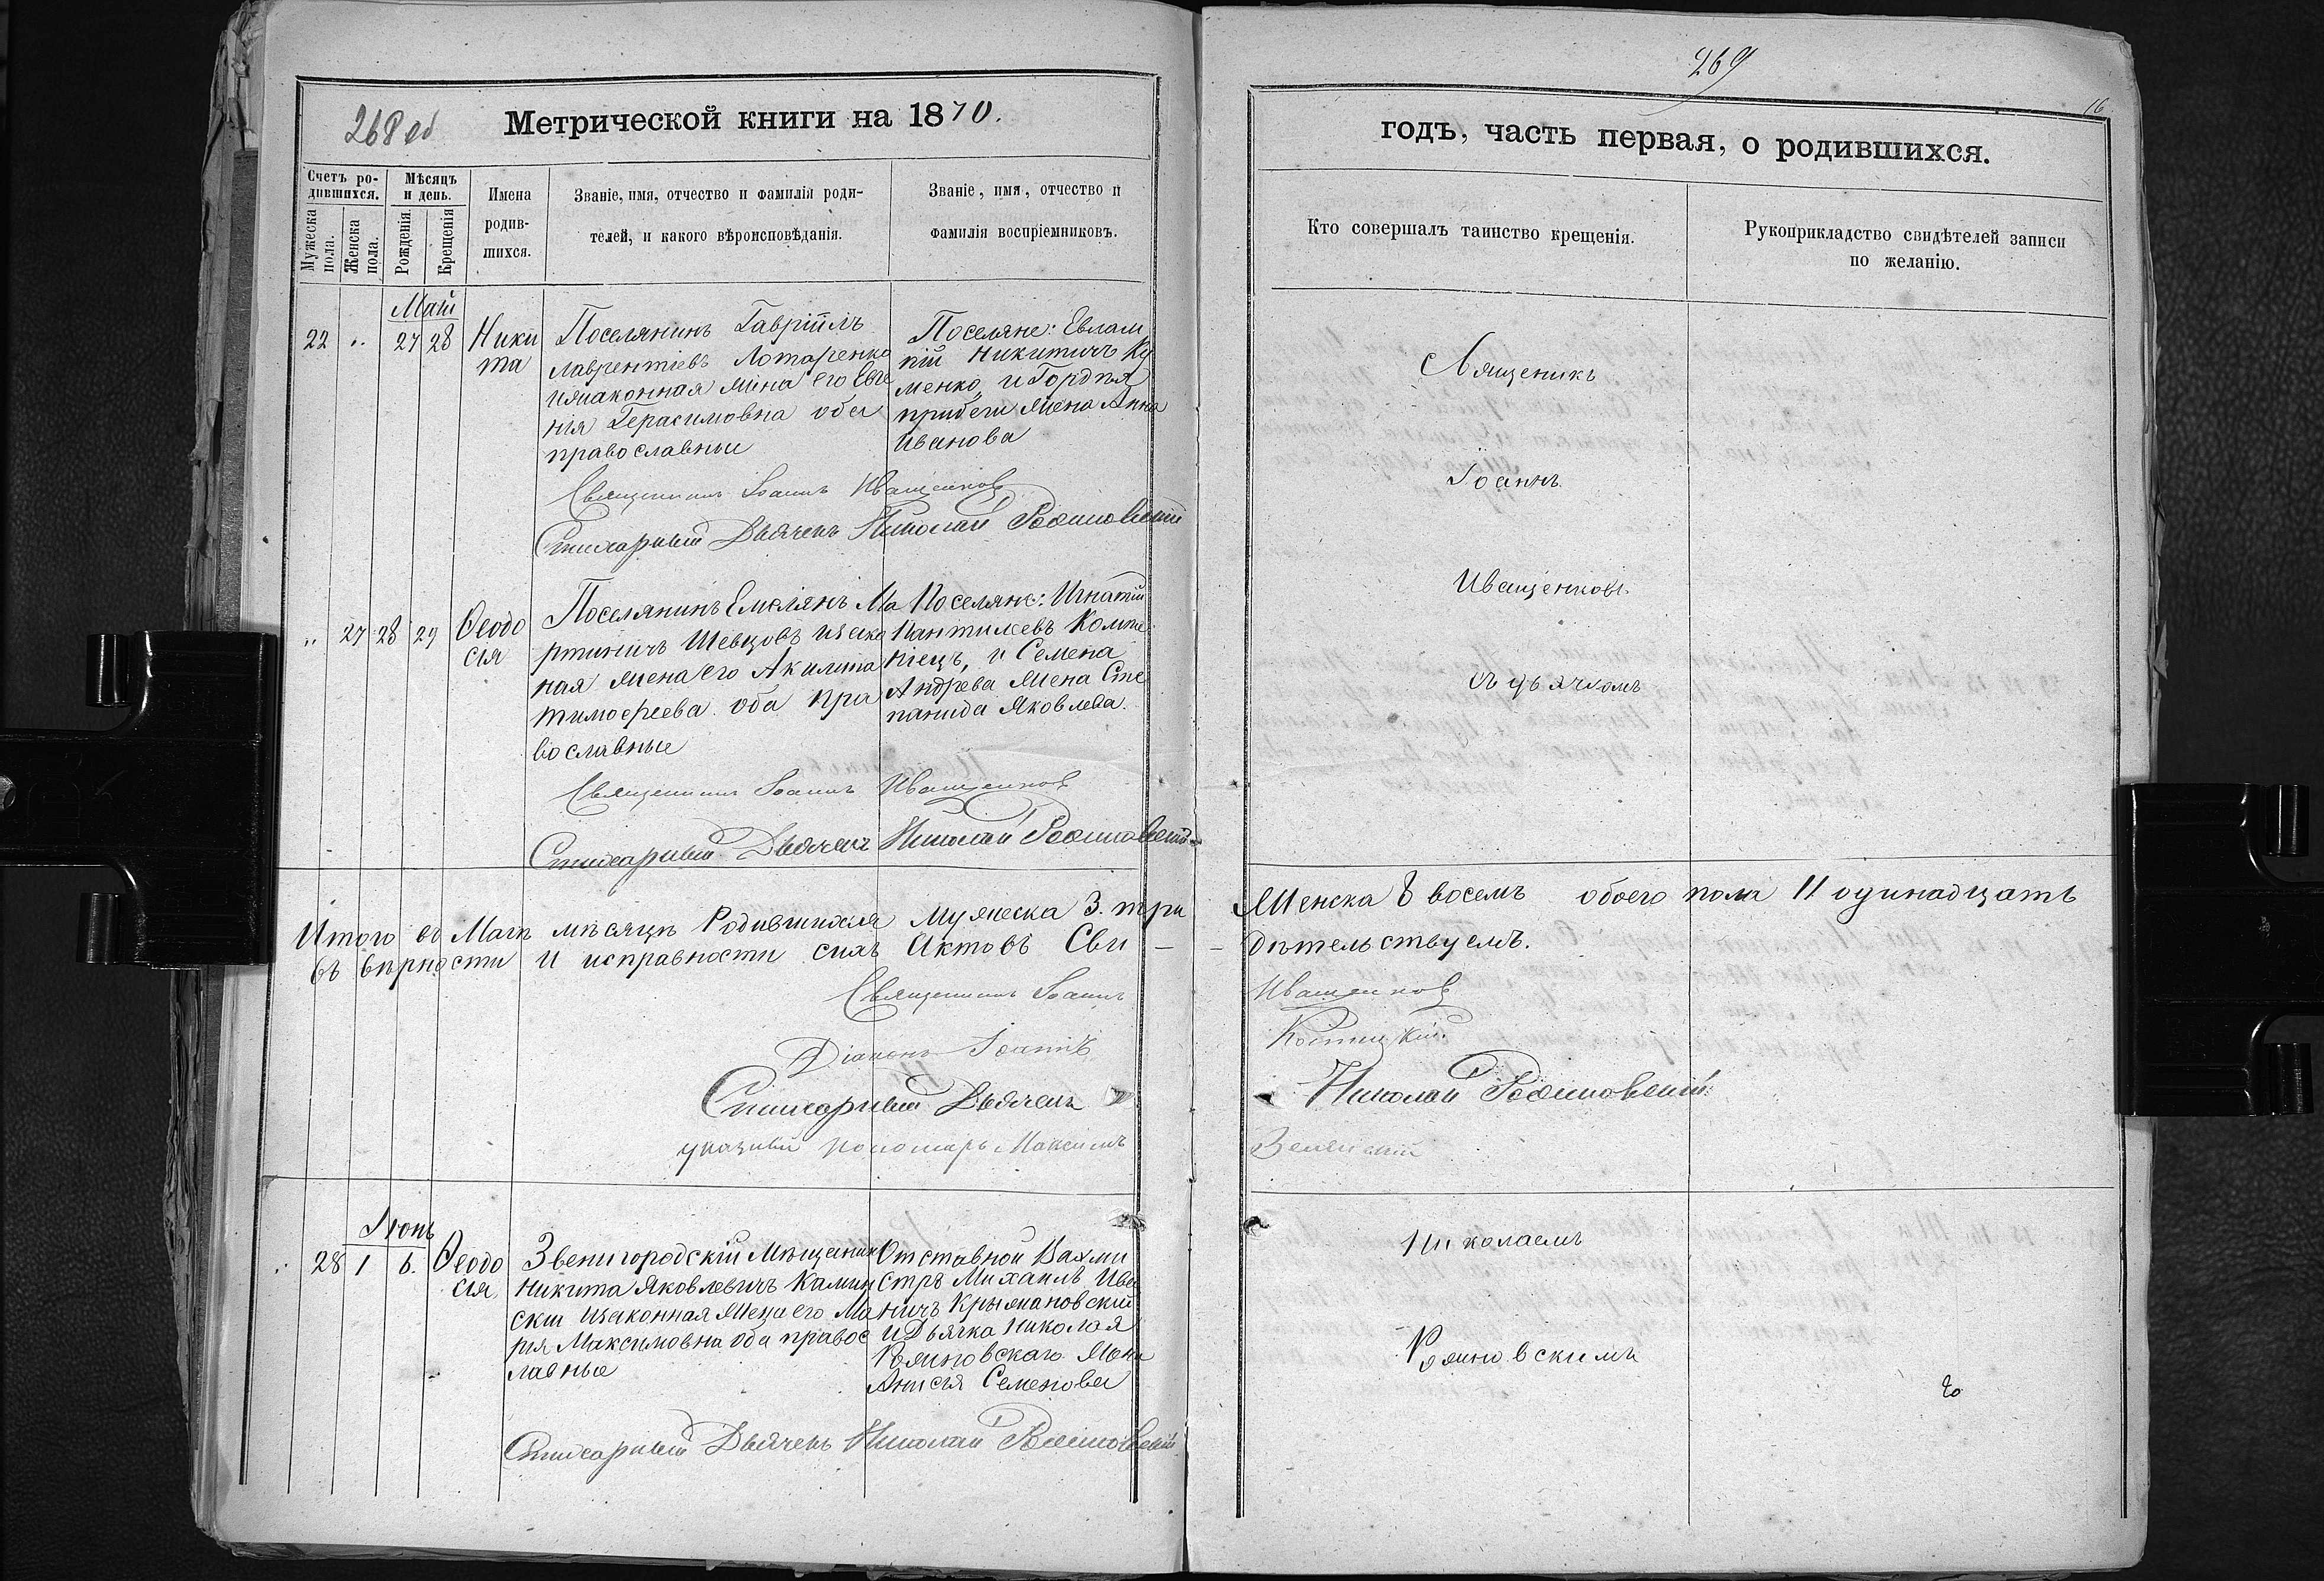 268 об
Метрической книги на 1870.
Счетъ ро-
дившихся.
Мѣсяцъ
и день.
Мужеска
пола.
Женска
пола.
Рожденія.
Крещенія
Имена
родив-
шихся.
Званіе, имя, отчество и фамилія роди-
телей, и какого вѣроисповѣданія.
Званіе, имя, отчество и
фамилія воспріемниковъ.
Май
22 „ 27 28
Ники
та
Поселянинъ Гавріилъ
Лаврентіевъ Лотаренко
изаконная жена его Евге
нія Герасимовна оба
православныи
Поселяне: Евлам
пій Никитичъ Ку
менко, и Гордѣя
жена Анна
Иванова
Священникъ Іоаннъ Иващенковъ
Стихарный Дьячекъ Николай
„ 27 28 29
Ѳеодо
сія
Поселянинъ Емеліянъ Ма
ртиничъ Шевцовъ изако
ная жена его Акилина
Тимоѳеева оба пра
вославные
Поселяне: Игнатій
Пантилеевъ
и Семена
Андрева жена Сте
панида Яковлева.
Священникъ Іоаннъ Иващенковъ
Стихарный Дьячекъ Николай
Итого въ Маѣ мѣсяцѣ Родившихся Мужеска 3. три
въ вѣрности и исправности сихъ Актовъ Сви –
Священникъ Іоаннъ
Діаконъ Іоаннъ
Стихарный Дьячекъ
указный пономарь Максимъ
Іюнь
„ 28 1 6.
Ѳеодо
сія
Звенигородскій Мѣщанинъ
Никита Яковлевичъ Камин
скии изаконная жена его Ма
рія Максимовна оба правос
лавные
Отставной Вахми
стръ Михаилъ Ива
ничъ Крыжановскій
и Дьячка Николая
жена
Анисія Семенова
Стихарный Дьячекъ Николай
269
16
годъ, часть первая, о родившихся.
Кто совершалъ таинство крещенія.
Рукоприкладство свидѣтелей записи
по желанію.
Священикъ
Іоаннъ
Иващенковъ
съ дьячкомъ
Женска 8 восемъ обоего пола 11 одинадцать
– дѣтельствуемъ.
Иващенковъ
Николай
Николаемъ